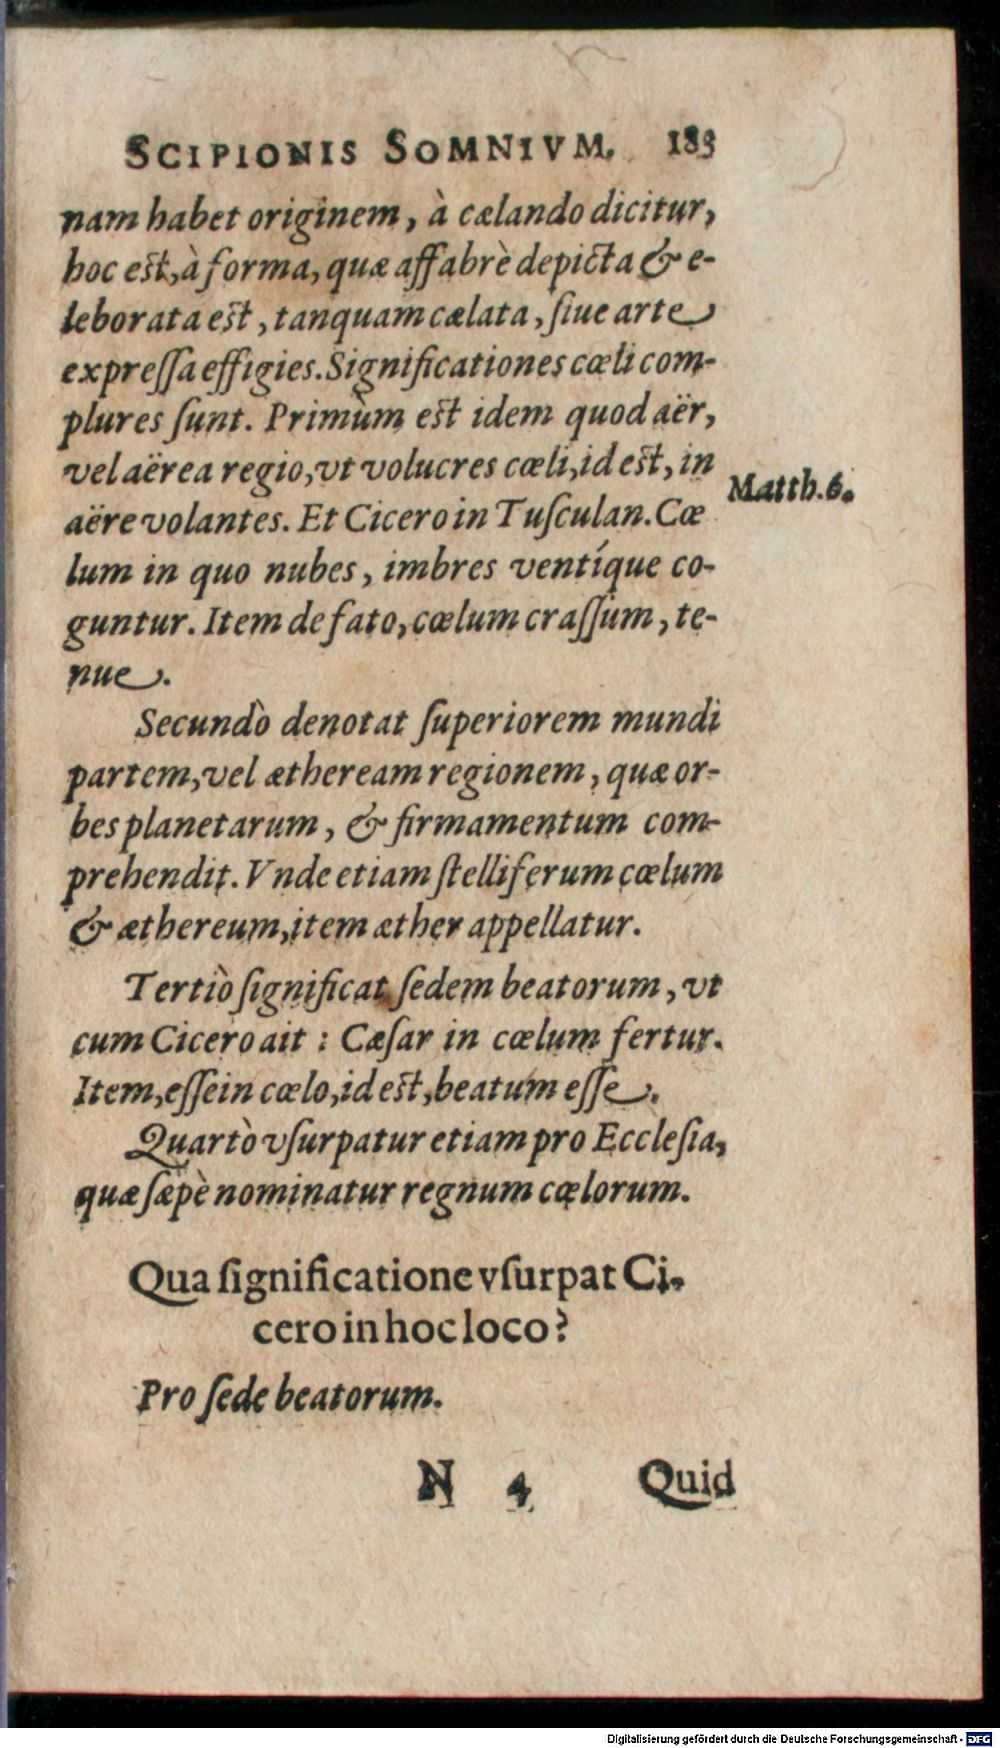 SCIPIONIS SOMNIVM. 183
nam habet originem, à cælando dicitur,
hoc est, à forma, quæ affabrè depicta & e-
leborata est, tanquam cælata, ſiue arte
expreſſa effigies. Significationes cœli com-
plures ſunt. Primùm est idem quod aër,
vel aërea regio, vt volucres cœli, id est, in
Matth. 6.
aëre volantes. Et Cicero in Tuſculan. Cœ
lum in quo nubes, imbres ventíque co-
guntur. Item de fato, cœlum craſſum, te-
nue.
Secundò denotat ſuperiorem mundi
partem, vel ætheream regionem, quæ or-
bes planetarum, & firmamentum com-
prehendit. Vnde etiam ſtelliferum cœlum
& æthereum, item æther appellatur.
Tertiò ſignificat ſedem beatorum, vt
cum Cicero ait : Cæſar in cœlum fertur.
Item, eſſe in cœlo, id est, beatum eſſe.
Quartò vſurpatur etiam pro Eccleſia,
quæ ſæpè nominatur regnum cœlorum.
Qua ſignificatione vſurpat Ci-
cero in hoc loco?
Pro ſede beatorum.
N 4 Quid
Digitalisierung gefördert durch die Deutsche Forschungsgemeinschaft - DFG